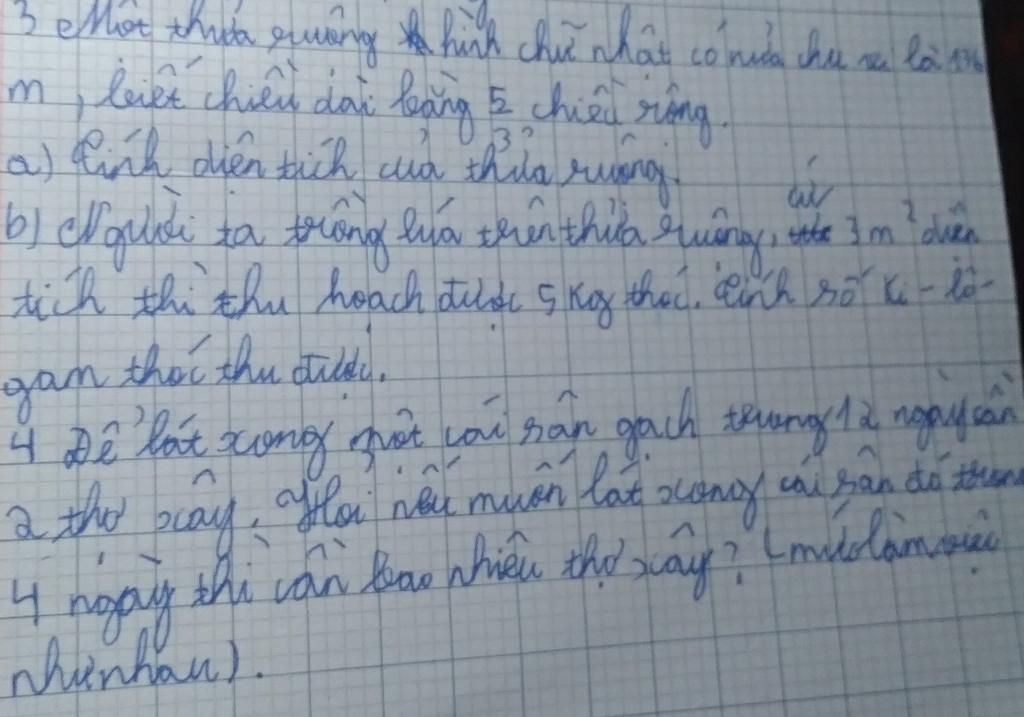 3 Một thửa ruộng hình chữ nhật có nửa chu vi là 136
m, biết chiều dài bằng 5/3 chiều rộng.
a) Tính diện tích của thửa ruộng.
b) Người ta trồng lúa trên thửa ruộng, cứ 3m² diện
tích thì thu hoạch được 5 kg thóc. Tính số ki-lô-
gam thóc thu được.
4 Để lát xong một cái sân gạch trong 12 ngày cần
2 thợ xây. Hỏi nếu muốn lát xong cái sân đó trong
4 ngày thì cần bao nhiêu thợ xây? (mức làm việc
như nhau).